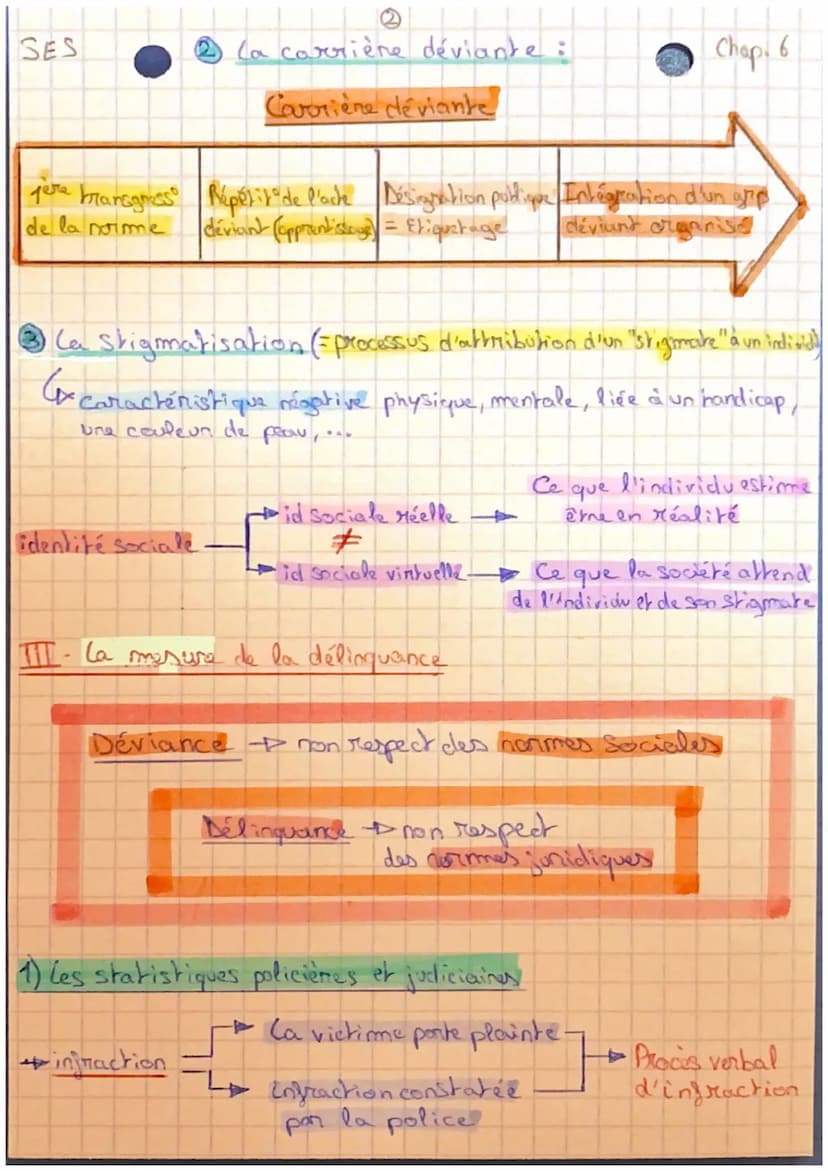 ②
SES
② La carrière déviante :
Chap. 6
Carrière déviante
1ère transgress°
de la norme
Répétit° de l'acte
déviant (apprentissage)
Désignation publique
= Etiquetage
Intégration d'un grp
déviant organisé
③ La stigmatisation (= processus d'attribution d'un "stigmate" à un individu)
caractéristique négative physique, mentale, liée à un handicap,
une couleur de peau, ...
identité sociale
id sociale réelle →
Ce que l'individu estime
être en réalité
≠
id sociale virtuelle →
Ce que la société attend
de l'individu et de son stigmate
III - La mesure de la délinquance
Déviance → non respect des normes sociales
Délinquance → non respect
des normes juridiques
1) Les statistiques policières et judiciaires
→ infraction
La victime porte plainte
Infraction constatée
par la police
Procès verbal
d'infraction